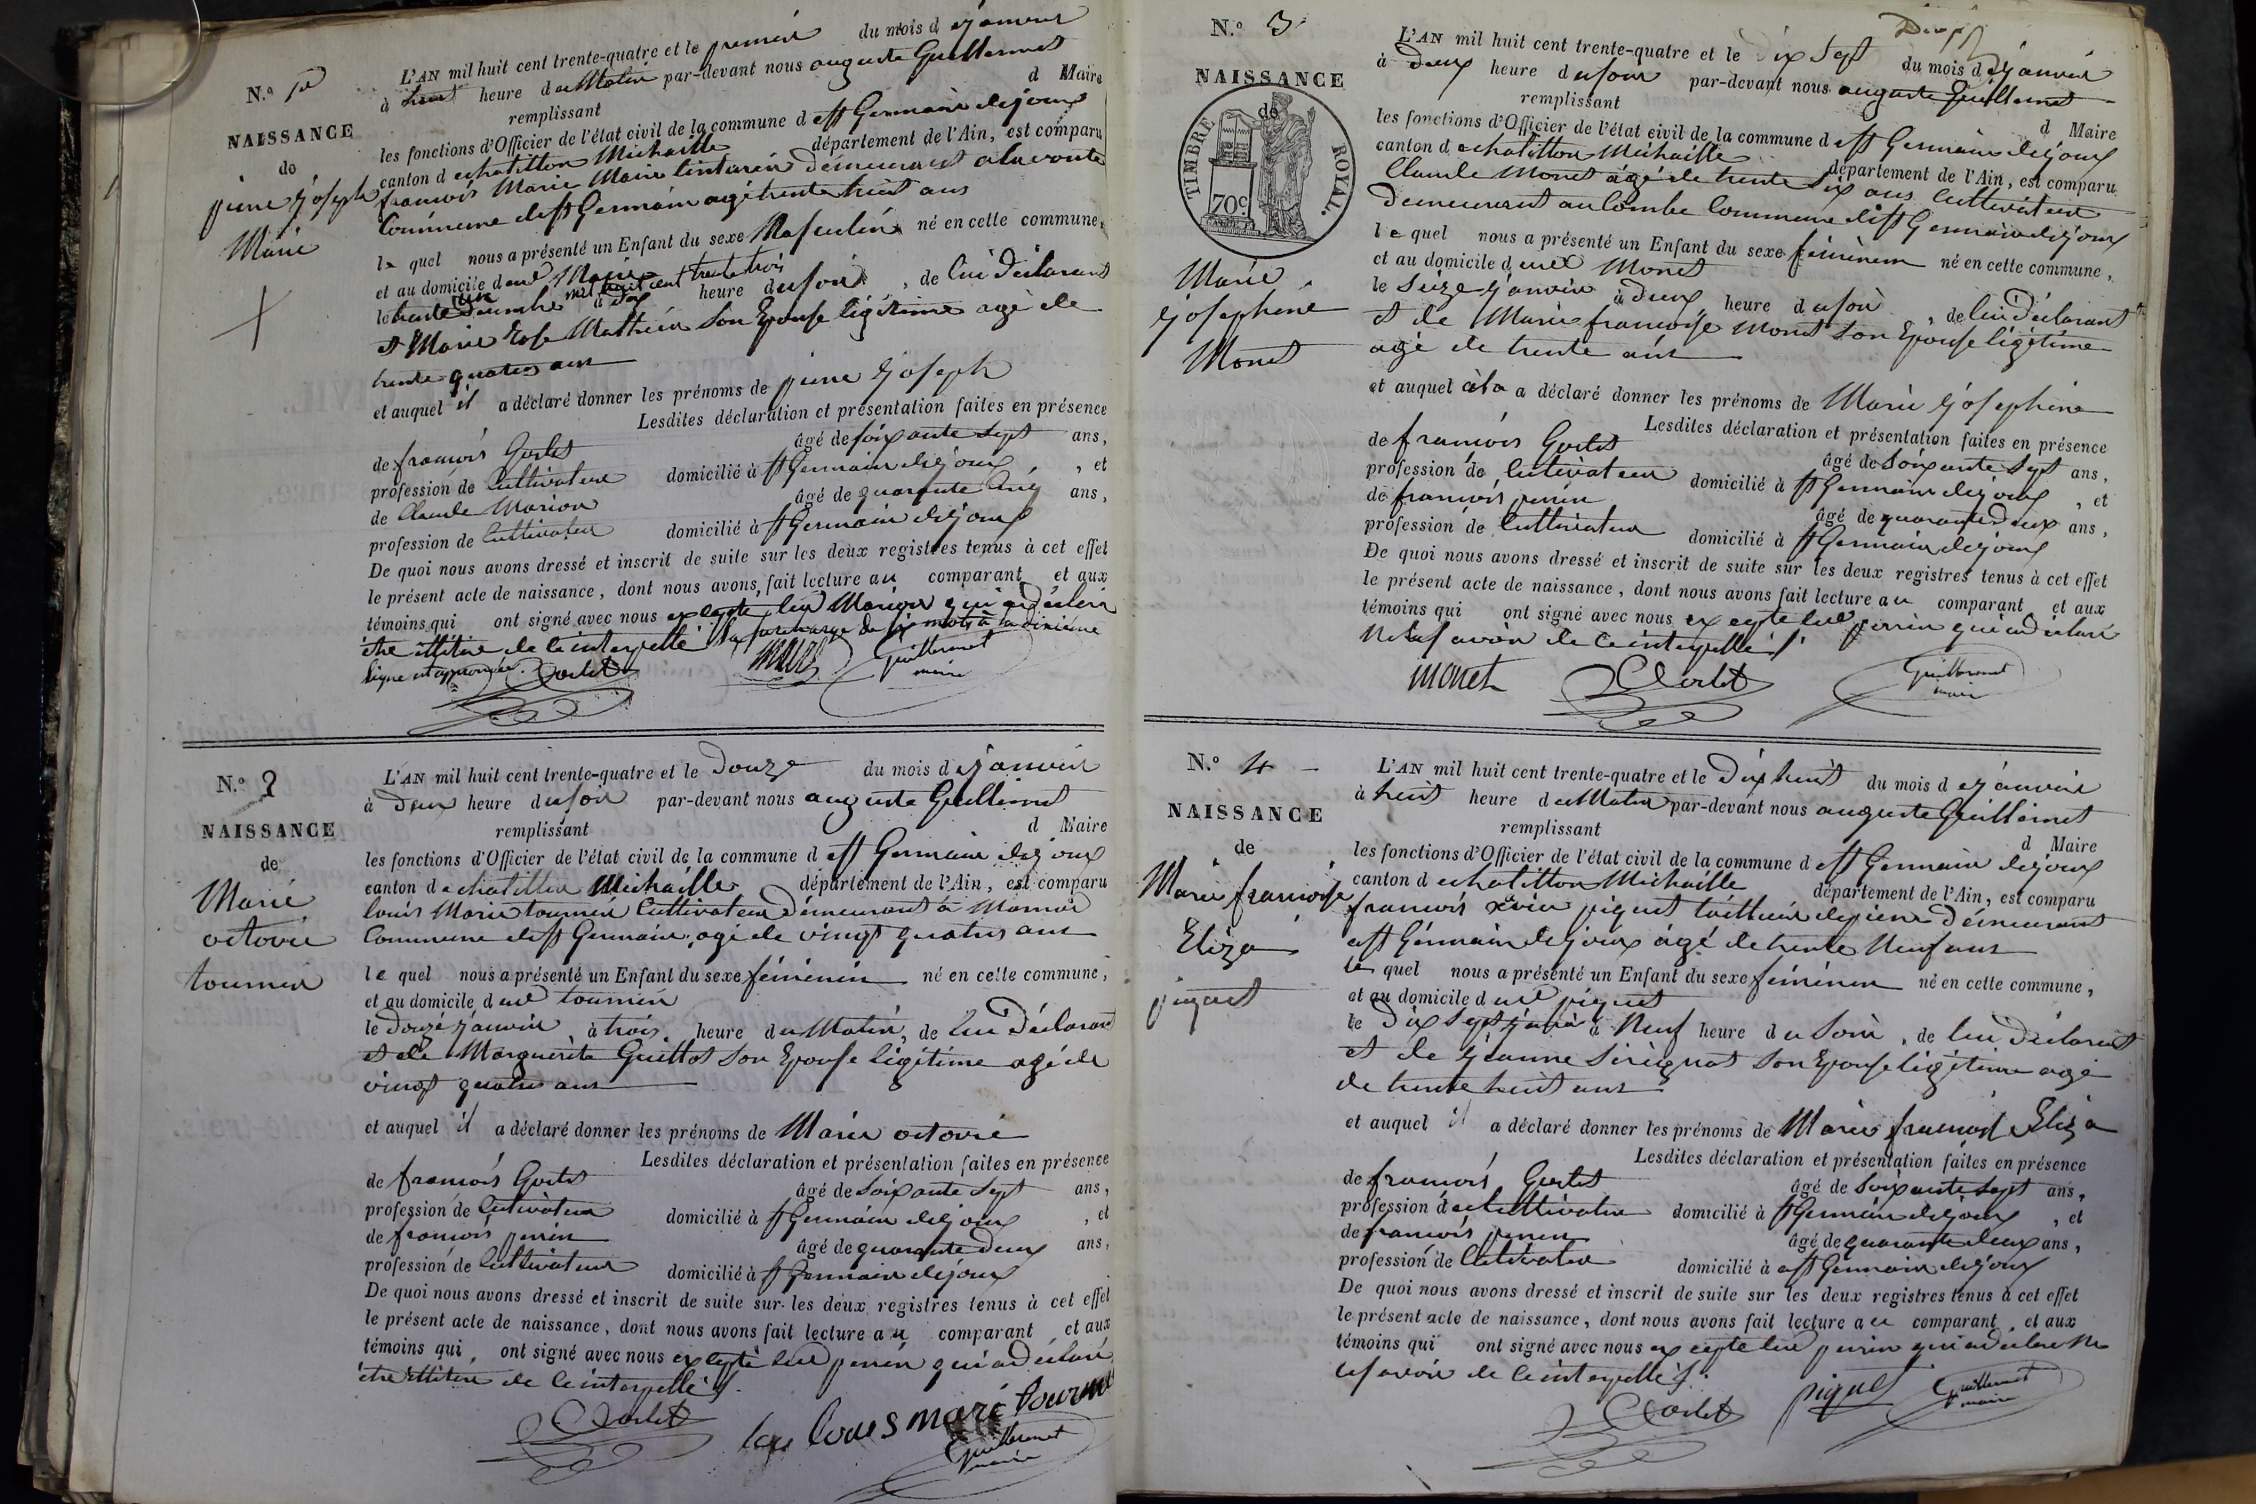 N.º 1er
NAISSANCE
de
pierre Joseph
Marie
L'AN mil huit cent trente-quatre et le premier du mois de janvier
à huit heure du Matin par-devant nous auguste Guillermet
remplissant d Maire
les fonctions d'Officier de l'état civil de la commune de st Germain dejoux
canton de chatillon Michaille département de l'Ain, est comparu
francois Marie Marie demeurant a la voute
Commune de st Germain agé trente huit ans
le quel nous a présenté un Enfant du sexe Masculin né en cette commune,
et au domicile dud Marie
le trente un Decembre mil huit cent trente trois à Six heure du soir, de lui Déclarant
et Marie Rose Mathieu Son Epouse légitime agé de
trente quatre ans
et auquel il a déclaré donner les prénoms de pierre Joseph
Lesdites déclaration et présentation faites en présence
de francois Gorlet âgé de soixante sept ans,
profession de Cultivateur domicilié à st Germain dejoux, et
de Claude Marion âgé de quarante cinq ans,
profession de Cultivateur domicilié à st Germain dejoux
De quoi nous avons dressé et inscrit de suite sur les deux registres tenus à cet effet
le présent acte de naissance, dont nous avons fait lecture au comparant et aux
témoins qui ont signé avec nous excepte led Marion qui a déclaré
être illitéré de ce interpellé la surcharge de six mots à la dixième
ligne est approuvée. Gorlet Marie Guillermet
maire
N.º 2
NAISSANCE
de
Marie
octovie
tournier
L'AN mil huit cent trente-quatre et le Douze du mois de janvier
à Deux heure du soir par-devant nous auguste Guillermet
remplissant d Maire
les fonctions d'Officier de l'état civil de la commune de st Germain dejoux
canton de chatillon Michaille département de l'Ain, est comparu
louis Marie tournier Cultivateur Demeurant à
Commune de st Germain, agé de vingt quatre ans
le quel nous a présenté un Enfant du sexe féminin né en cette commune,
et au domicile dud tournier
le douze janvier à trois heure du Matin, de lui Déclarant
et de Marguerite Guillot Son Epouse légitime agé de
vingt quatre ans
et auquel il a déclaré donner les prénoms de Marie octovie
Lesdites déclaration et présentation faites en présence
de francois Gorlet âgé de soixante sept ans,
profession de Cultivateur domicilié à st Germain dejoux, et
de francois perrin âgé de quarante deux ans,
profession de Cultivateur domicilié à st Germain dejoux
De quoi nous avons dressé et inscrit de suite sur les deux registres tenus à cet effet
le présent acte de naissance, dont nous avons fait lecture au comparant et aux
témoins qui ont signé avec nous excepté led perrin qui a déclaré
être illitéré de ce interpellé
Gorlet loues marie tournier
Guillermet
maire
N.º 3
NAISSANCE
de
TIMBRE ROYAL.
70c
Marie
josephine
Monet
L'AN mil huit cent trente-quatre et le Dix Sept du mois de janvier
à Deux heure du soir par-devant nous auguste Guillermet
remplissant d Maire
les fonctions d'Officier de l'état civil de la commune de st Germain dejoux
canton de chatillon Michaille département de l'Ain, est comparu
Claude Monet agé de trente Six ans Cultivateur
Demeurant au Combe Commune de st Germain dejoux
le quel nous a présenté un Enfant du sexe féminin né en cette commune,
et au domicile dud Monet
le Seize janvier à Deux heure du soir, de lui déclarant
et de Marie francoise Monet Son Epouse légitime
agé de trente ans
et auquel a déclaré donner les prénoms de Marie josephine
Lesdites déclaration et présentation faites en présence
de francois Gorlet âgé de soixante sept ans,
profession de Cultivateur domicilié à st Germain dejoux, et
de francois perrin âgé de quarante deux ans,
profession de Cultivateur domicilié à st Germain dejoux
De quoi nous avons dressé et inscrit de suite sur les deux registres tenus à cet effet
le présent acte de naissance, dont nous avons fait lecture au comparant et aux
témoins qui ont signé avec nous excepte led perrin qui a déclaré
ne savoir de ce interpellé
monet Gorlet Guillermet
maire
N.º 4
NAISSANCE
de
Marie francoise
Eliza
piquet
L'AN mil huit cent trente-quatre et le Dix huit du mois de janvier
à huit heure du Matin par-devant nous auguste Guillermet
remplissant d Maire
les fonctions d'Officier de l'état civil de la commune de st Germain dejoux
canton de chatillon Michaille département de l'Ain, est comparu
francois xvier piquet tailleur de pierre Demeurant
a st Germain dejoux âgé de trente Neuf ans
le quel nous a présenté un Enfant du sexe féminin né en cette commune,
et au domicile dud piquet
le Dix Sept janvier à Neuf heure du Soir, de lui Déclarant
et de jeanne Son Epouse légitime agé
de trente huit ans
et auquel il a déclaré donner les prénoms de Marie francoise Eliza
Lesdites déclaration et présentation faites en présence
de francois Gorlet âgé de soixante sept ans,
profession de Cultivateur domicilié à st Germain dejoux, et
de francois perrin âgé de quarante deux ans,
profession de Cultivateur domicilié à st Germain dejoux
De quoi nous avons dressé et inscrit de suite sur les deux registres tenus à cet effet
le présent acte de naissance, dont nous avons fait lecture au comparant et aux
témoins qui ont signé avec nous excepte led perrin qui a déclaré ne
savoir de ce interpellé
Gorlet piquet Guillermet
maire